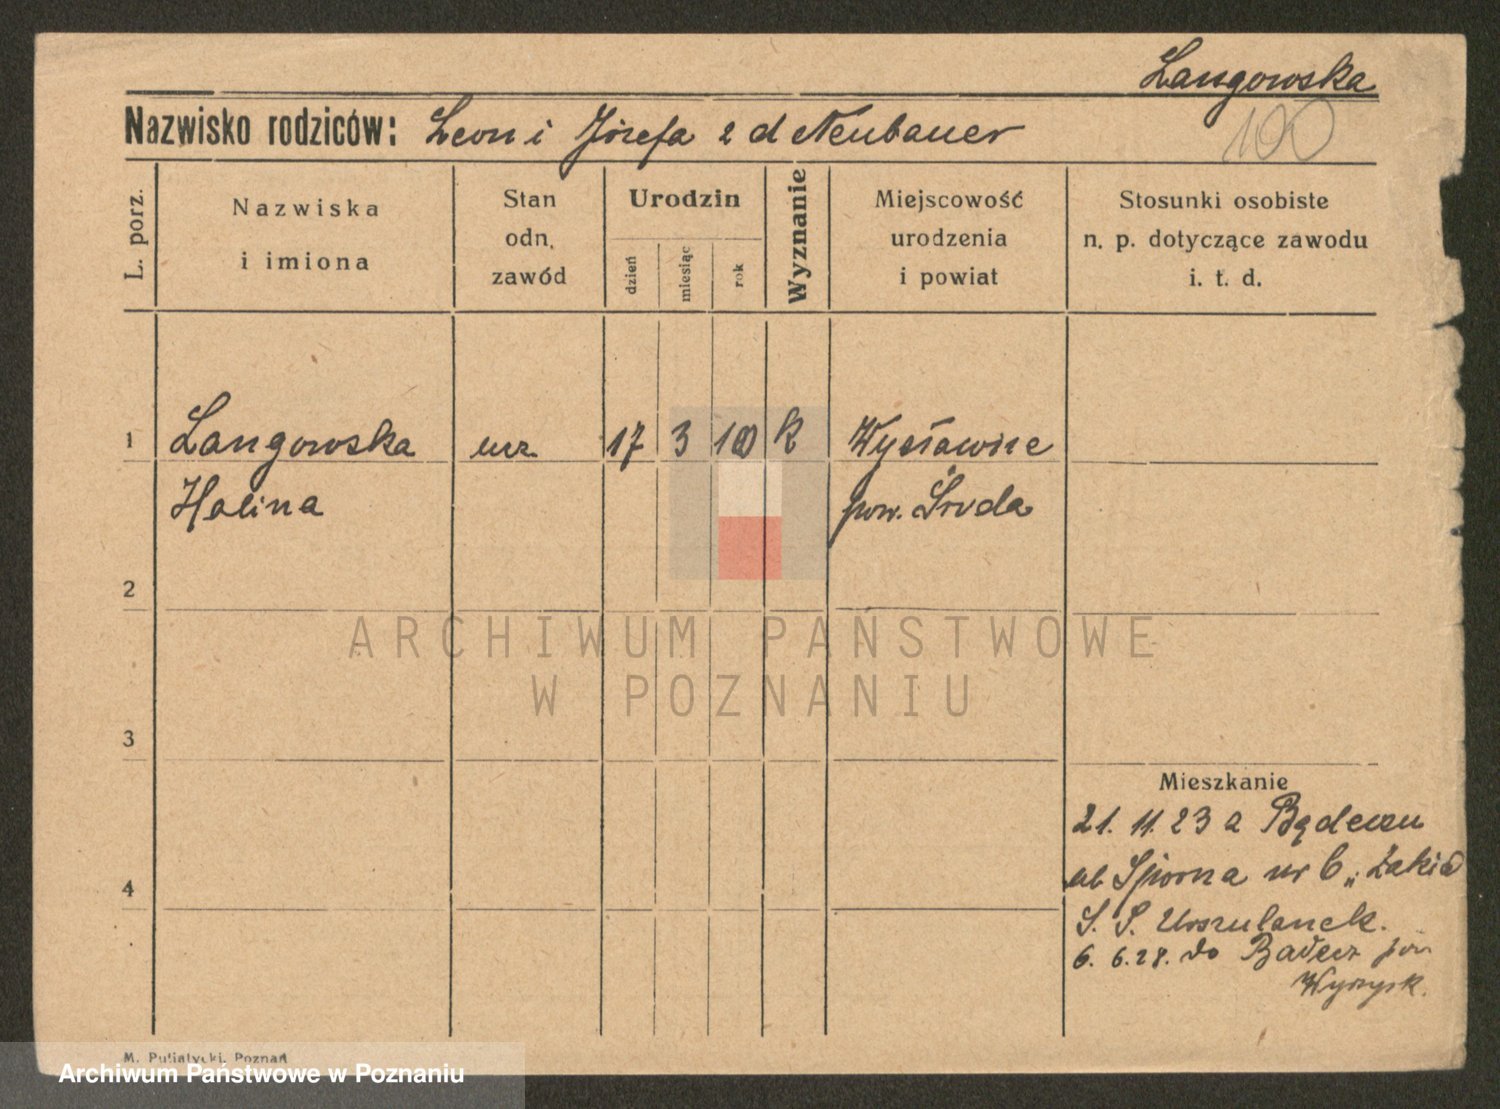 Langowska
100
Nazwisko rodziców: Leon i Józefa z d Neubauer
L. porz.
Nazwiska
i imiona
Stan
odn.
zawód
Urodzin
dzień
miesiąc
rok
Wyznanie
Miejscowość
urodzenia
i powiat
Stosunki osobiste
n. p. dotyczące zawodu
i. t. d.
1 Langowska ucz 17 3 10 k Wysławice
Halina pow. Środa
2
ARCHIWUM PAŃSTWOWE
W POZNANIU
3
Mieszkanie
21. 11. 23 z Będlewa
ul. Sporna nr 6 „Zakła
4
S. S. Urszulanek.
6. 6. 28. do Badecz pow
Wyrzysk.
M. Putiatycki, Poznań
Archiwum Państwowe w Poznaniu